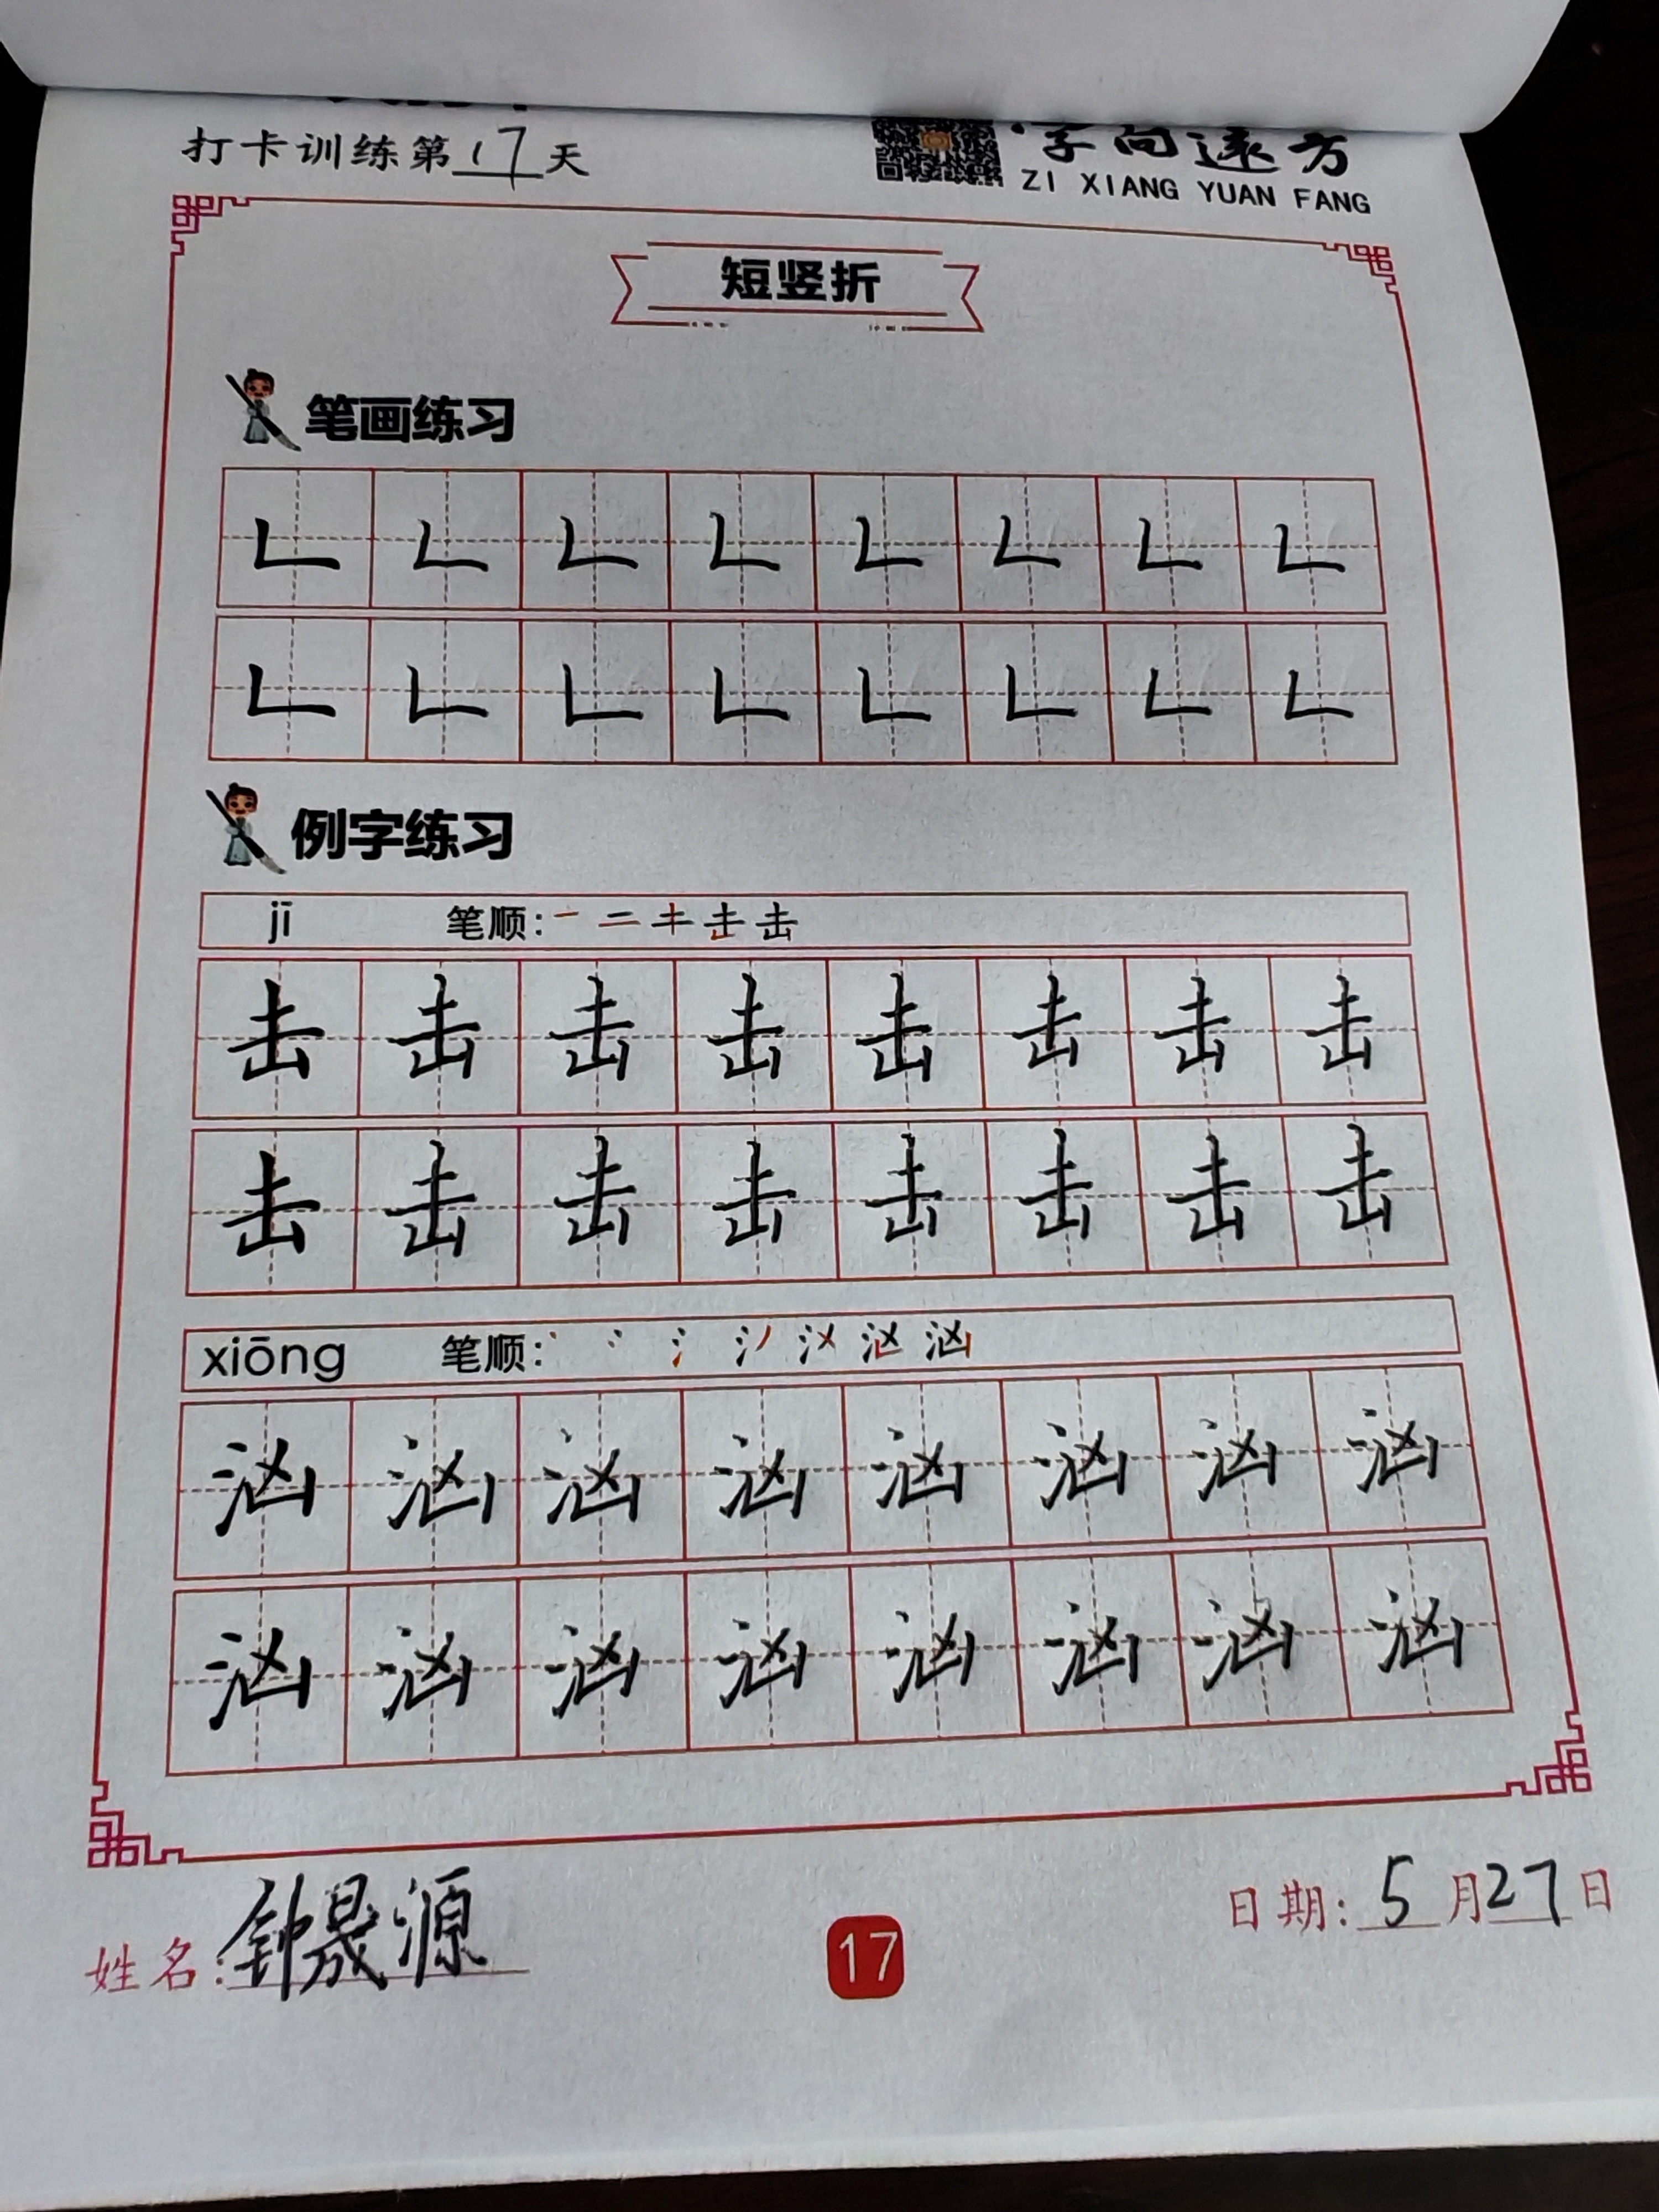 打卡训练第17天
字向远方
ZI XIANG YUAN FANG
短竖折
笔画练习
𠃊 𠃊 𠃊 𠃊 𠃊 𠃊 𠃊 𠃊
𠃊 𠃊 𠃊 𠃊 𠃊 𠃊 𠃊 𠃊
例字练习
jī 笔顺: 击
击 击 击 击 击 击 击 击
击 击 击 击 击 击 击 击
xiōng 笔顺: 汹
汹 汹 汹 汹 汹 汹 汹 汹
汹 汹 汹 汹 汹 汹 汹 汹
姓名: 钟晟源
17
日期: 5月27日